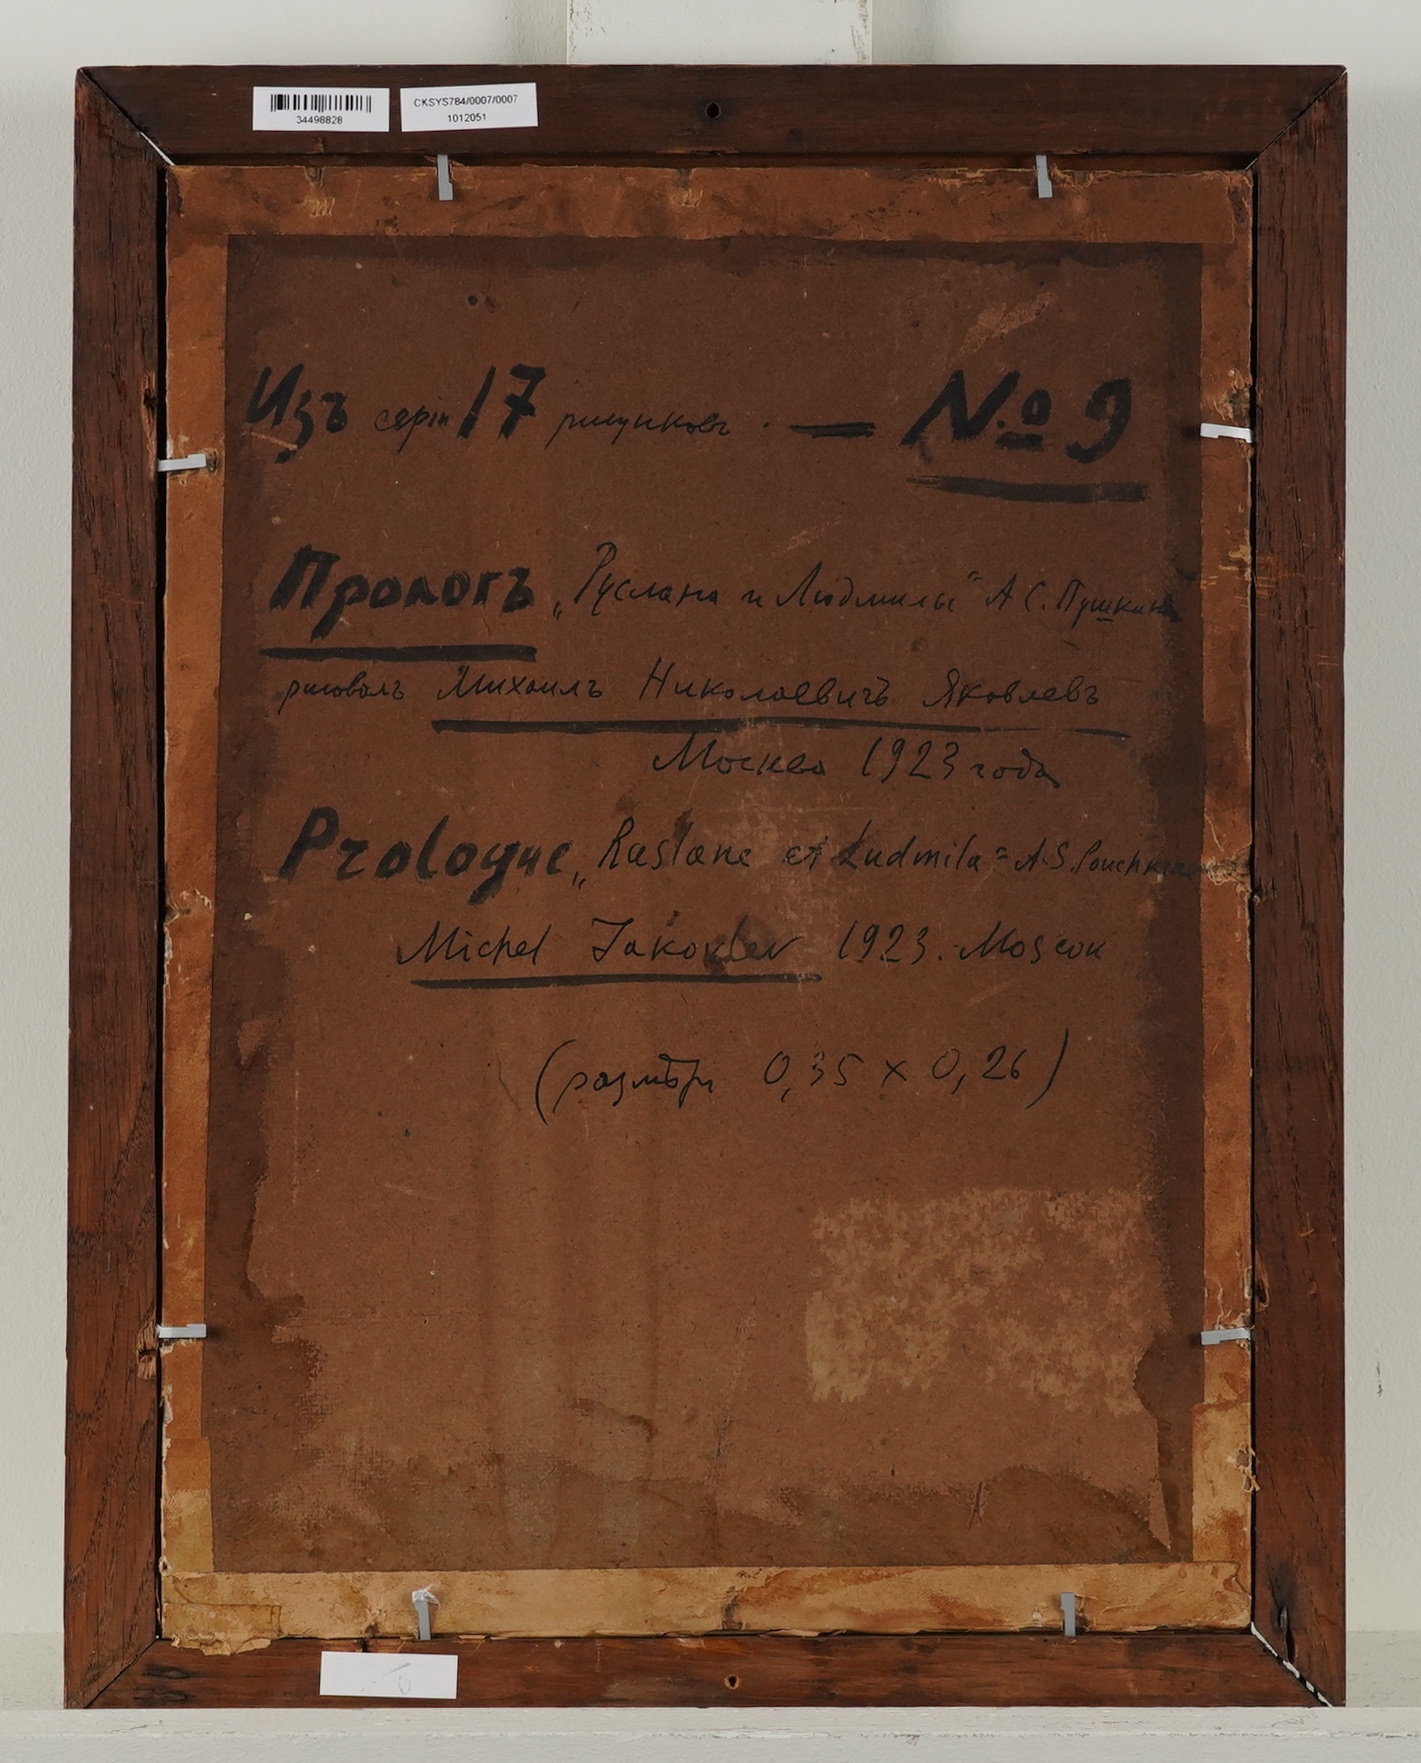 34498828
CKSYS784/0007/0007
1012051
Изъ серіи 17 рисунковъ. — № 9
Прологъ „Руслана и Людмилы" А С. Пушкина
рисовалъ Михаилъ Николаевичъ Яковлевъ
Москва 1923 года
Prologue „Raslane et Ludmila" A.S. Pouchkine
Michel Jakovlev 1923. Moscou
(размѣръ 0,35 x 0,26)